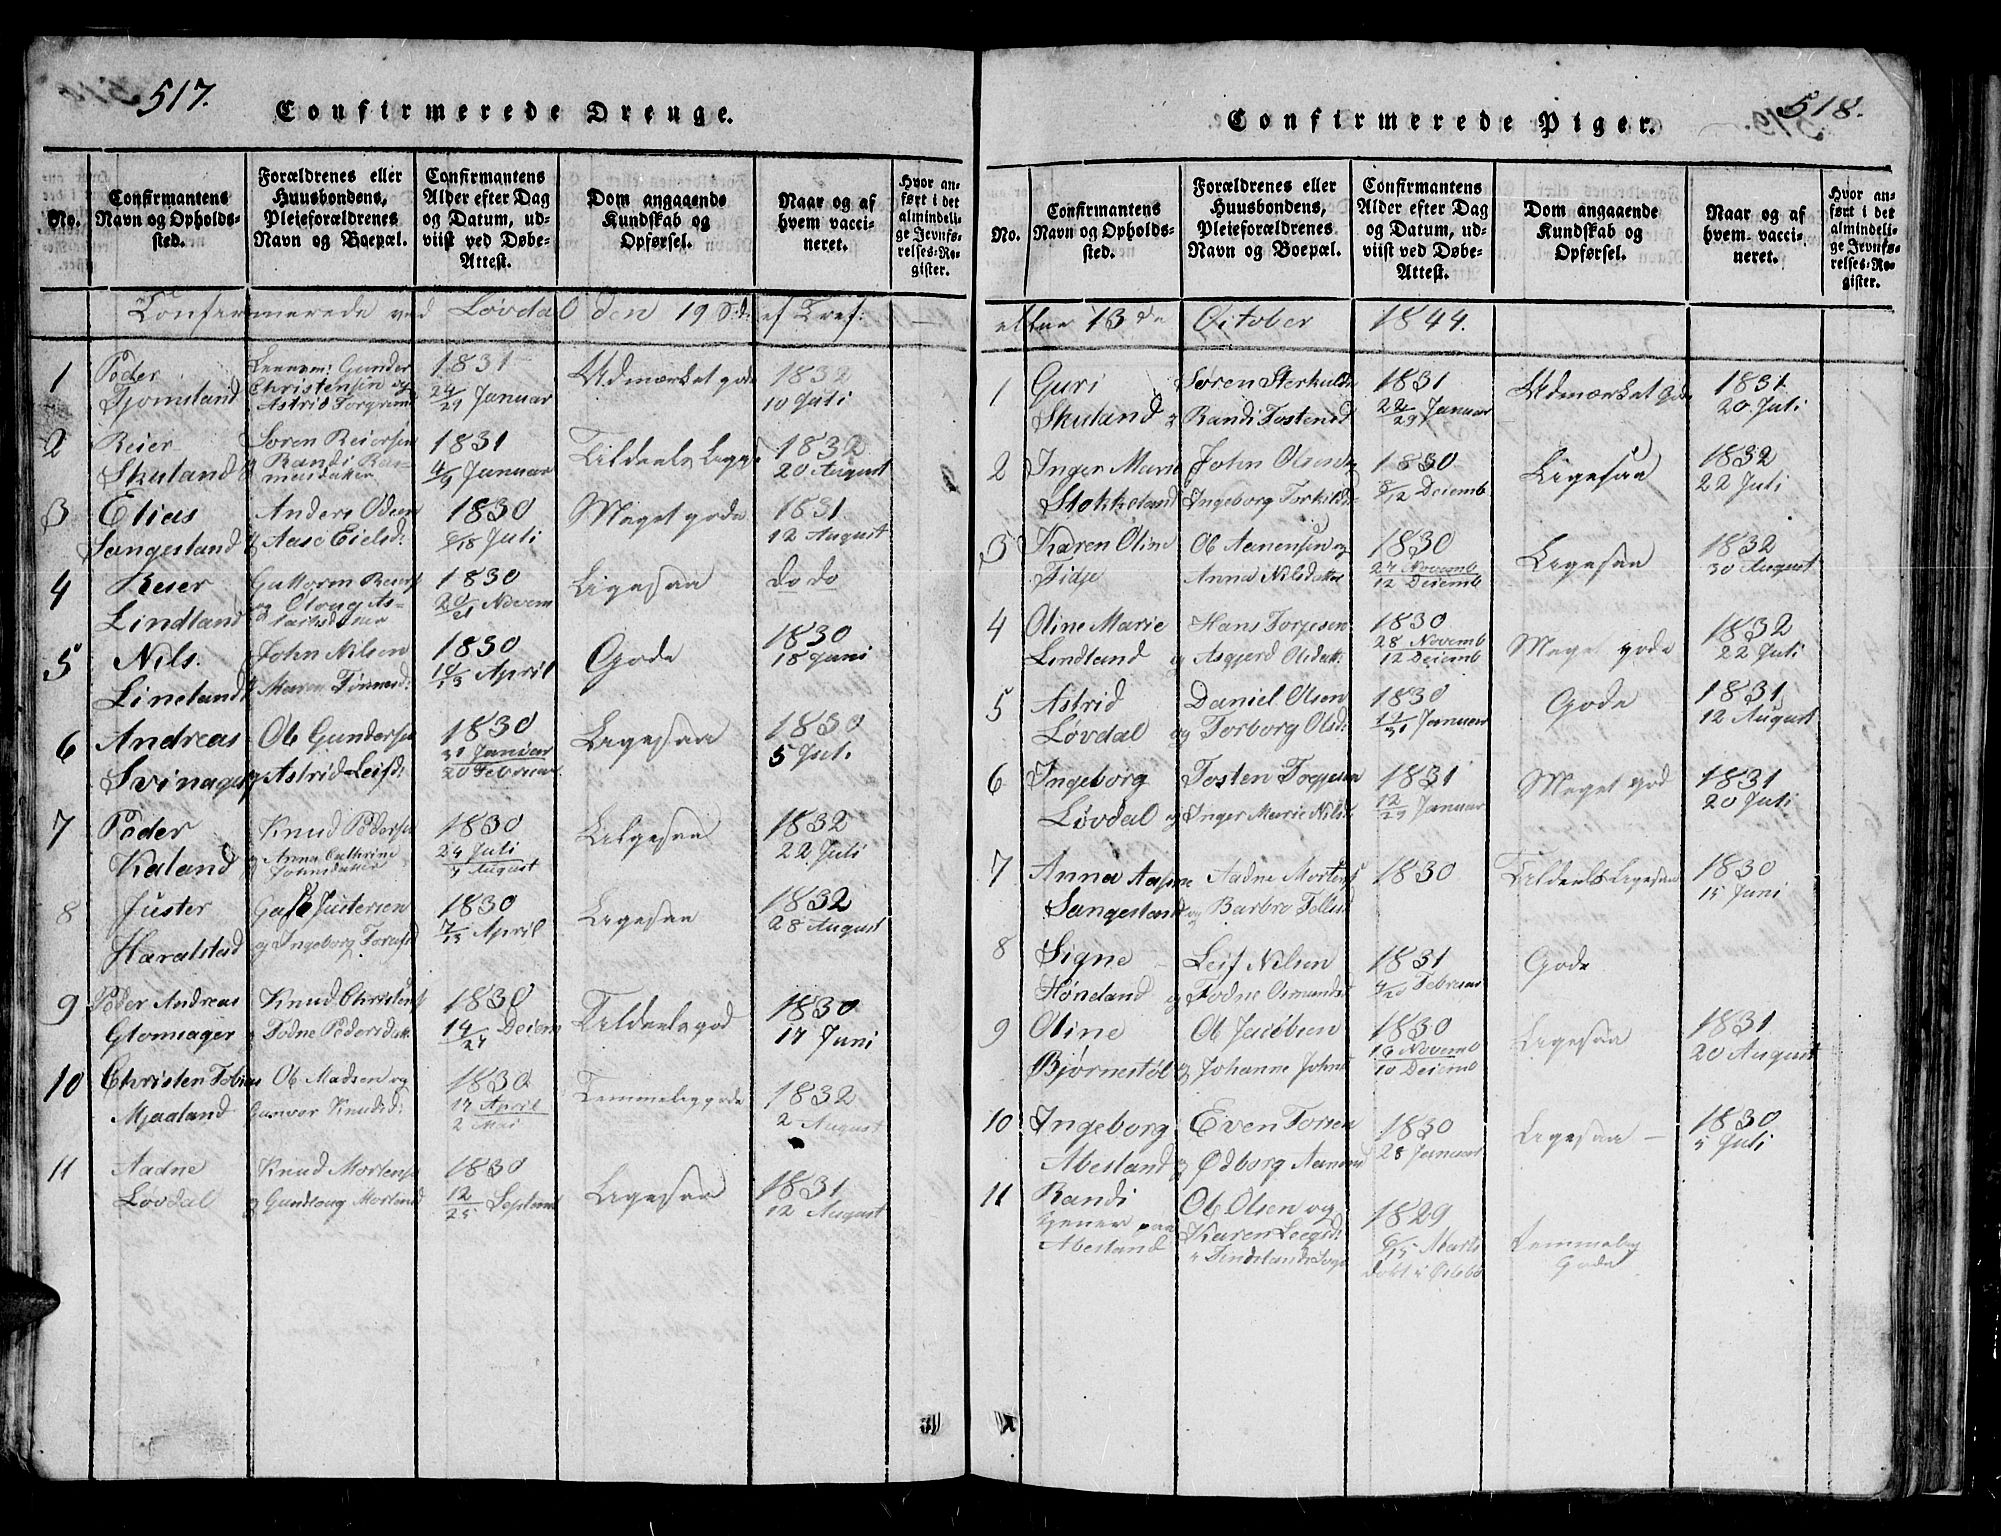 517.
Confirmerede Drenge.
No.
Confirmantens Navn og Opholdssted.
Forældrenes eller Huusbondens, Pleieforældrenes Navn og Boepæl.
Confirmantens Alder efter Dag og Datum, udviist ved Døbe-Attest.
Dom angaaende Kundskab og Opførsel.
Naar og af hvem vaccineret.
Hvor anført i det almindelige Jevnførelses-Register.
Confirmerede ved Løvdal den 19 S:d: ef Tref:
1
Peder
Tjomsland
Gunder
Christensen og
Astrid
1831
24/29 Januar
Udmærket gode
1832
10 Juli
2
Reier
Skuland
Soren Reiersen
& Randi Ras-
musdatter
1831
4/9 Januar
Tildeels Lige
1832
20 August
3
Elias
Sangesland
Anders Odsen
& Aase Eielsd:
1830
6/18 Juli
Meget gode
1831
12 August
4
Reier
Lindland
Guttorm Reiers
og Oloug As-
laksdatter
1830
20/21 Novem
Ligesaa
do do
5
Nils.
Lineland
John Nilsen
& Maren Tönnesd:
1830
10/13 April
Gode
1830
18 Juni
6
Andreas
Svinager
Ob Gundersen
& Astrid Leifsd:
1830
31 Januar
20 Februar
Ligesaa
1830
5 Juli
7
Peder
Kaland
Knud Pedersen
& Anna Cathrine
Johnsdatter
1830
24 Juli
1 August
Liigesaa
1832
22 Juli
8
Juster
Haralstad
Justersen
og Ingeborg
1830
7/13 April
Ligesaa
1832
28 August
9
Peder Andreas
Glomsager
Knud Christens
& Todne Pedersdatt
1830
14/27 Deiem
Tildeels god
1830
17 Juni
10
Christen Tobias
Mjaaland
Ob Madsen og
Gunvor Knudsd:
1830
17 April
2 Mai
Temmelig gode
1832
2 August
11
Aadne
Løvdal
Knud Mortens
& Gundloug Mortensd
1830
12/25 Septem
Ligesaa
1831
12 August
518.
Confirmerede Piger.
No.
Confirmantens Navn og Opholdssted.
Forældrenes eller Huusbondens, Pleieforældrenes Navn og Boepæl.
Confirmantens Alder efter Dag og Datum, udviist ved Døbe-Attest.
Dom angaaende Kundskab og Opførsel.
Naar og af hvem vaccineret.
Hvor anført i det almindelige Jevnførelses-Register.
13de October 1844.
1
Guri
Skuland
Søren Sterkulds
& Randi Tostensd
1831
22/29 Januar
Udmærket gode
1831
20 Juli
2
Inger Marie
Stokkeland
John Olsen &
Ingeborg Torkildsd
1830
8/12 Deiemb
Ligesaa
1832
22 Juli
3
Karen Oline
Fidje
Ob Aanensen og
Anna Nilsdatter
1830
27 Novemb
12 Deiemb
Ligesaa
1832
30 August
4
Oline Marie
Lindland
Hans Torjesen
og Asgjerd Olsdatt:
1830
28 Novemb
12 Deiemb
Meget gode
1832
22 Juli
5
Astrid
Løvdal
Daniel Olsen
og Torborg Olsd:
1830
Januar
Gode
1831
12 August
6
Ingeborg
Løvdal
Tosten Torjesen
og Inger Marie Nilsd
1831
12/29 Januar
Meget god
1831
20 Juli
7
Anna Aasine
Sangesland
Aadne Mortens
og Barbro Tellesd
1830
Tildeels Ligesaa
1830
15 Juni
8
Signe
Høneland
Leif Nilsen
og Todne Osmundsd
1831
4/20 Februar
Gode
9
Oline
Bjørnestøl
Ob Jacobsen
& Johanne Johns
1830
16 Novemb
10 Deiemb
Ligesaa
1831
20 August
10
Ingeborg
Abesland
Even Torsen
& Ødborg Aanonsd
1830
28 Januar
Ligesaa
1830
5 Juli
11
Randi
tjener paa
Abesland
Ob Olsen og
Karen Leegsd:
1829
6/15 Marts
døbt i Øslebø
temmelig
Gode